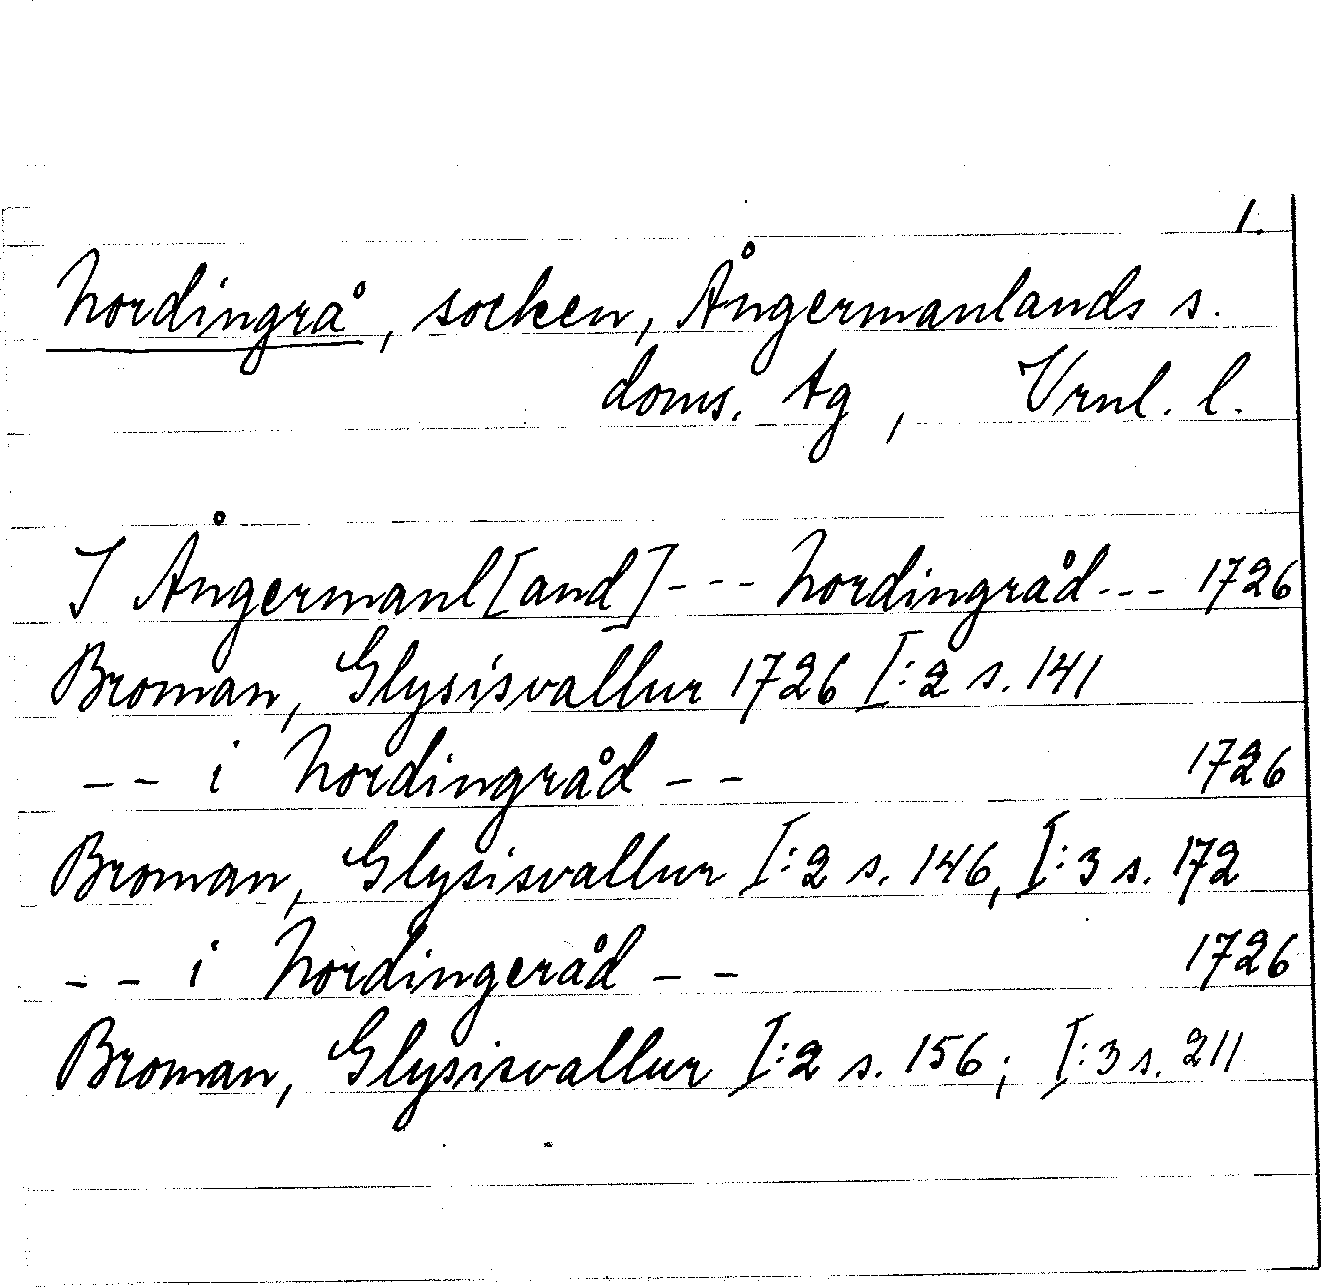 1.
Nordingrå, socken, Ångermanlands s.
doms. tg, Vrnl. l.
I Ångermanl[and]--- Nordingråd--- 1726
Broman, Glysisvallur 1726 I:2 s. 141
-- i Nordingråd -- 1726
Broman, Glysisvallur I:2 s. 146, I:3 s. 172
-- i Nordingeråd -- 1726
Broman, Glysisvallur I:2 s. 156; I:3 s. 211